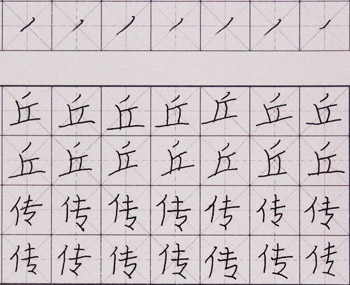 丿丿丿丿丿丿丿
丘丘丘丘丘丘丘
丘丘丘丘丘丘丘
传传传传传传传
传传传传传传传